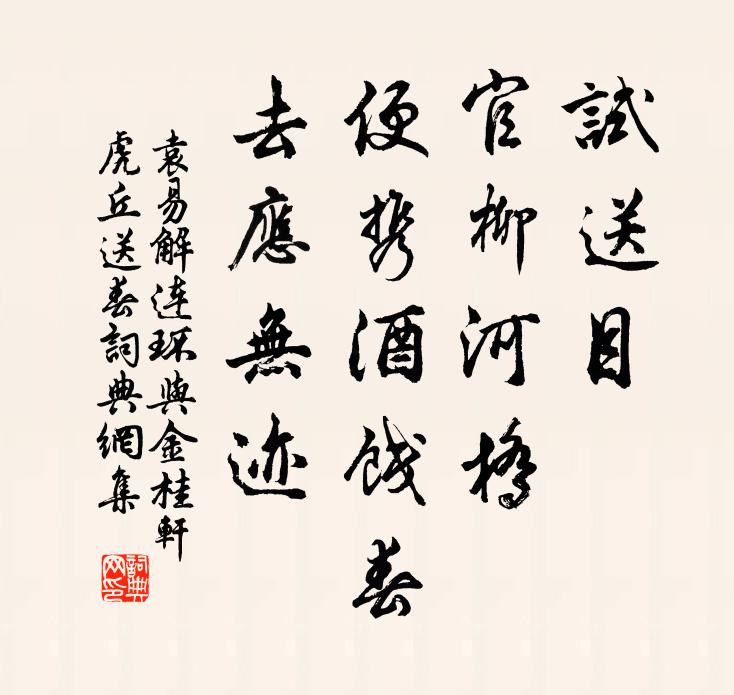 試送目
官柳河橋
便携酒餞春
去應無迹
袁易解連环與金桂軒
虎丘送春詞典網集
詞典网印